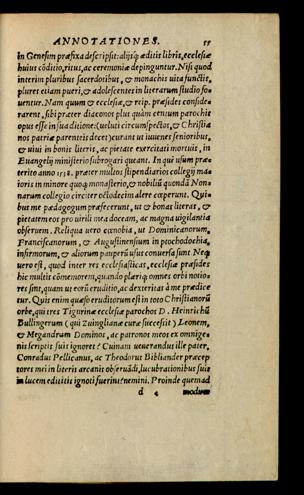 ANNOTATIONES. 55
in Genesim præfixa descripsit: alijsq́; æditis libris, ecclesiæ
huius cōditio, ritus, ac ceremoniæ depinguntur. Nisi quod
interim pluribus sacerdotibus, & monachis uita functis,
plures etiam pueri, & adolescentes in literarum studio fo-
uentur. Nam quum & ecclesiæ, & reip. præsides conside-
rarent, sibi præter diaconos plus quàm centum parochis
opus esse in sua ditione: (uelut circumspectos, & Christia
nos patriæ parenteis decet) curant ut iuuenes senioribus,
& uiui in bonis literis, ac pietate exercitati mortuis, in
Euangelij ministerio subrogari queant. In qui usum præ-
terito anno 1538. præter multos stipendiarios collegij ma-
ioris in minore quoq; monasterio, & nobiliū quondā Non-
narum collegio circiter octodecim alere cœperunt. Qui-
bus me pædagogum præfecerunt, ut & bonas literas, &
pietatem eos pro uirili mea doceam, ac magna uigilantia
obseruem. Reliqua uero cœnobia, ut Dominicanorum,
Franciscanorum, & Augustinensium in ptochodochia,
infirmorum, & aliorum pauperū usus conuersa sunt. Neq;
uero est, quod inter res ecclesiasticas, ecclesiæ præsides
hic multis cōmemorem, quando plæriq; omnes orbi notio-
res sint, quàm ut eorū eruditio, ac dexteritas à me prædice
tur. Quis enim quæso eruditorum est in toto Christianorū
orbe, qui tres Tigurinæ ecclesiæ parochos D. Heinrichū
Bullingerum (qui Zuinglianæ curæ successit) Leonem,
& Megandrum Dominos, ac patronos meos ex omnige-
nis scriptis suis ignoret? Cuinam ueuerandus ille pater,
Conradus Pellicanus, ac Theodorus Bibliander præcep
tores mei in literis arcanis obseruādi, lucubrationibus suis
in lucem edititis ignoti fuerint? nemini. Proinde quemad
d 4 modum